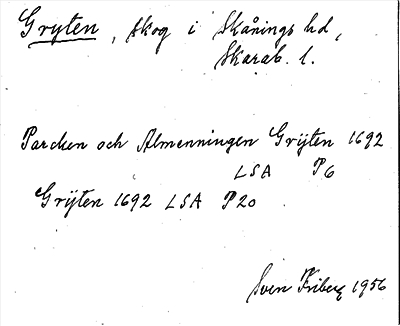 Gryten, skog i Skånings hd,
Skarab. l.
Parcken och Almenningen Grÿten 1692
LSA P6
Grÿten 1692 LSA P20
Sven Friberg 1956